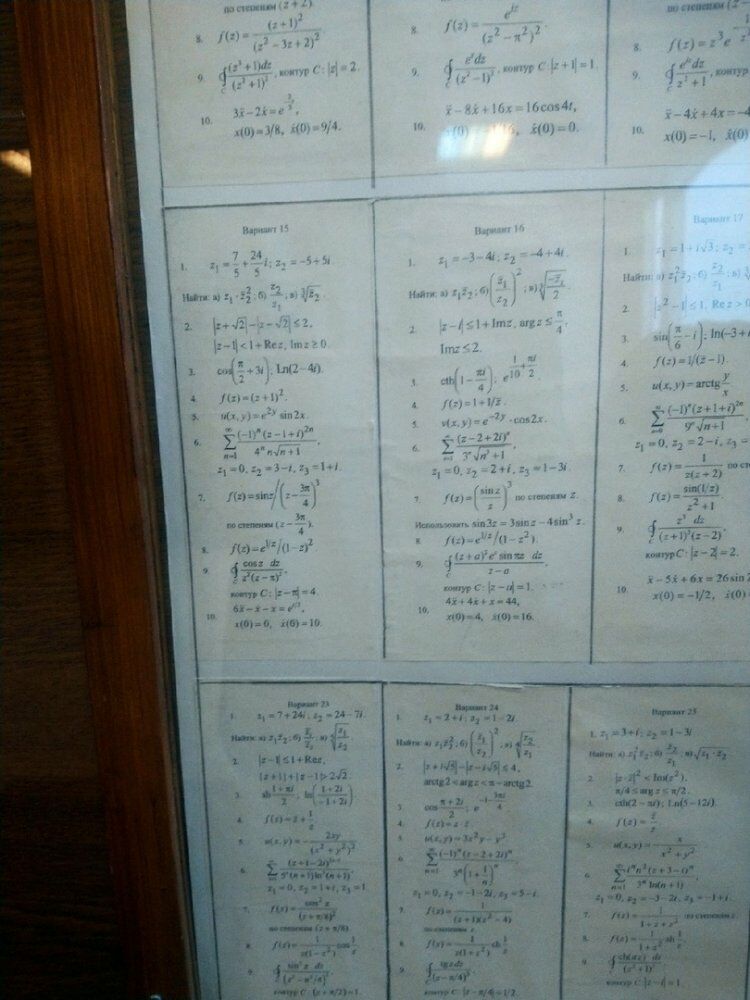 по степеням (z+2).
8. f(z) = (z+1)² / (z² − 3z + 2)²
9. ∮_C (z³+1)dz / (z²+1)², контур C: |z| = 2.
10. 3ẍ − 2ẋ =
x(0) = 3/8, ẋ(0) = 9/4.
8. f(z) = e^{iz} / (z² − π²)².
9. ∮_C e^z dz / (z²−1)³, контур C: |z+1| = 1.
10. ẍ − 8ẋ + 16x = 16cos4t,
ẋ(0) = 0.
по степеням
8. f(z) = z³e
9. ∮_C e^{iz}dz / z³+1, контур
10. ẍ − 4ẋ + 4x = −4
x(0) = −1, ẋ(0)
Вариант 15
1. z₁ = 7/5 + 24/5 i; z₂ = −5+5i
Найти: а) z₁·z̄₂²; б) z₂/z₁; в) ∛z̄₂.
2. |z+√2| − |z−√2| ≤ 2,
|z−1| < 1+Re z, Im z ≥ 0.
3. cos(π/2 + 3i); Ln(2−4i).
4. f(z) = (z+1)².
5. u(x, y) = e^{2y} sin2x.
6. ∑_{n=1}^∞ (−1)ⁿ(z−1+i)^{2n} / 4ⁿ n√(n+1),
z₁ = 0, z₂ = 3−i, z₃ = 1+i.
7. f(z) = sin z / (z − 3π/4)³
по степеням (z − 3π/4).
8. f(z) = e^{1/z}/(1−z)²
9. ∮_C cos z dz / z²(z−π)²,
контур C: |z−π| = 4.
10. 6ẍ − ẋ − x = e^{t/3},
x(0) = 0, ẋ(0) = 10.
Вариант 16
1. z₁ = −3−4i; z₂ = −4+4i.
Найти: а) z₁z̄₂; б) (z̄₁/z₂)²; в)
2. |z−i| ≤ 1+Im z, arg z ≤ π/4,
Im z ≤ 2.
3. cth(1 − πi/4); e^{1/10 + πi/2}.
4. f(z) = 1+1/z̄.
5. v(x, y) = e^{−2y}·cos2x.
6. ∑_{n=1}^∞ (z−2+2i)ⁿ / 3ⁿ√(n³+1),
z₁ = 0, z₂ = 2+i, z₃ = 1−3i.
7. f(z) = (sin z / z)³ по степеням z.
Использовать sin3z = 3sin z − 4sin³ z.
8. f(z) = e^{1/z}/(1−z²).
9. ∮_C (z+a)²e^z sin πz dz / z−a,
контур C: |z−a| = 1.
10. 4ẍ + 4ẋ + x = 44,
x(0) = 4, ẋ(0) = 16.
Вариант 17
1. z₁ = 1+i√3; z₂ =
Найти: а) z₁²z̄₂; б) z₂/z₁; в)
2. |z²−1| ≤ 1, Re z >
3. sin(π/6 − i); ln(−3+
4. f(z) = 1/(z̄−1).
5. u(x, y) = arctg y/x
6. ∑_{n=0}^∞ (−1)ⁿ(z+1+i)^{2n} / 9ⁿ√(n+1)
z₁ = 0, z₂ = 2−i, z₃ =
7. f(z) = 1 / z(z+2) по сте
8. f(z) = sin(1/z) / z²+1.
9. ∮_C z³ dz / (z+1)³(z−2),
контур C: |z−2| = 2.
10. ẍ − 5ẋ + 6x = 26sin2
x(0) = −1/2, ẋ(0)
Вариант 23
1. z₁ = 7+24i, z₂ = 24−7i.
Найти: а)
2. |z−1| ≤ 1+Re z,
|z+1|+|z−1| > 2√2
3. sh (1+πi)/2; ln((1+2i)/(−1+2i))
4. f(z) = z + 1/z
5. u(x, y) = − 2xy / (x²+y²)²
6. z₁ = 0, z₂ = 1+i, z₃ = 1
7. f(z) = sin²z / (z+π/8)²
по степеням (z+π/8)
8. f(z) = 1 / z(1−z²) cos 1/z
9. контур C: (z+π/2) = 1.
Вариант 24
1. z₁ = 2+i; z₂ = 1−2i
Найти: а) z₁z̄₂²; б) (z₁/z₂)²; в)
2. |z+i√5| − |z−i√5| ≤ 4,
arctg2 < arg z < π−arctg2.
3. cos (π+2i)/2;
4. f(z) = z·
5. u(x, y) = 3x²y − y³
6. ∑_{n=1}^∞ (−1)ⁿ(z−2+2i)ⁿ / 3ⁿ(1+1/n)ⁿ
z₁ = 0, z₂ = −1−2i, z₃ = 5−i.
7. f(z) = 1 / (z+1)(z²−4)
по степеням z
8. f(z) = 1 / z(1+z²) sh 1/z
9. ∮_C tg z dz / (z−π/4)³,
контур C: |z−π/4| = 1/2
Вариант 25
1. z₁ = 3+i; z₂ = 1−3i
Найти: а) z₁²z̄₂; б) z̄₂/z₁; в)
2. |z−2|² < Im(z²).
π/4 ≤ arg z ≤ π/2.
3. cth(2−πi); Ln(5−12i).
4. f(z) =
5. u(x, y) = x / x²+y².
6. z₁ = 0, z₂ = −3−2i, z₃ = −1+i.
7. f(z) = 1 / 1+z+z² по степеням z.
8. f(z) = 1 / 1+z² sh 1/z.
9. контур C: |z−i| = 1.